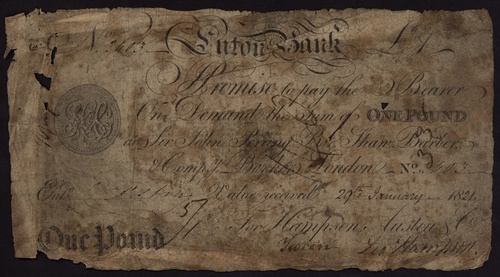 No. 3403 Luton Bank £1
I Promise to pay the Bearer
On Demand the Sum of ONE POUND
or Sir John Perring Bt. Shaw, Barber
& Compy. Bankers London No. 3403
Value received 29th January 1821
For Hampson, Austen & Co.
One Pound